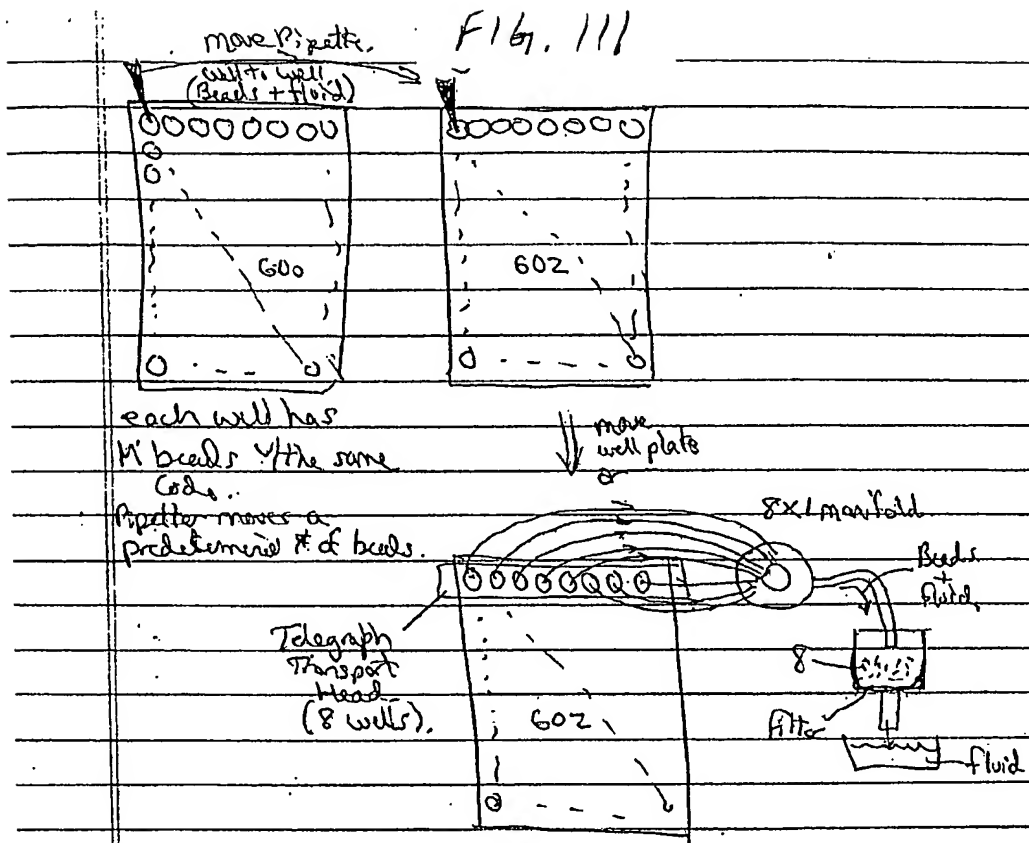 FIG. 111
move Pipette.
well to well
(Beads + fluid)
600
602
each well has
M beads w/the same
Code.
Pipetter moves a
predetermined # of beads.
move
well plate
or
8x1 manifold
Beads
+
fluid.
Telegraph
Transport
Head
(8 wells).
8
filter
602
fluid